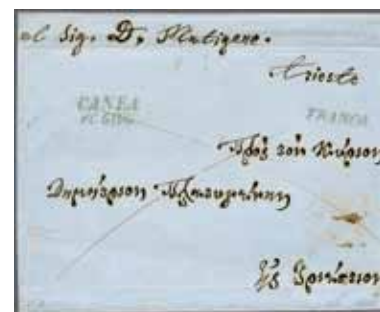 al Sig. D. Platigene.
Trieste
CANEA
FRANCA
Πρὸς τὸν Κύριον
Δημήτριον
Εἰς Τριέστιον